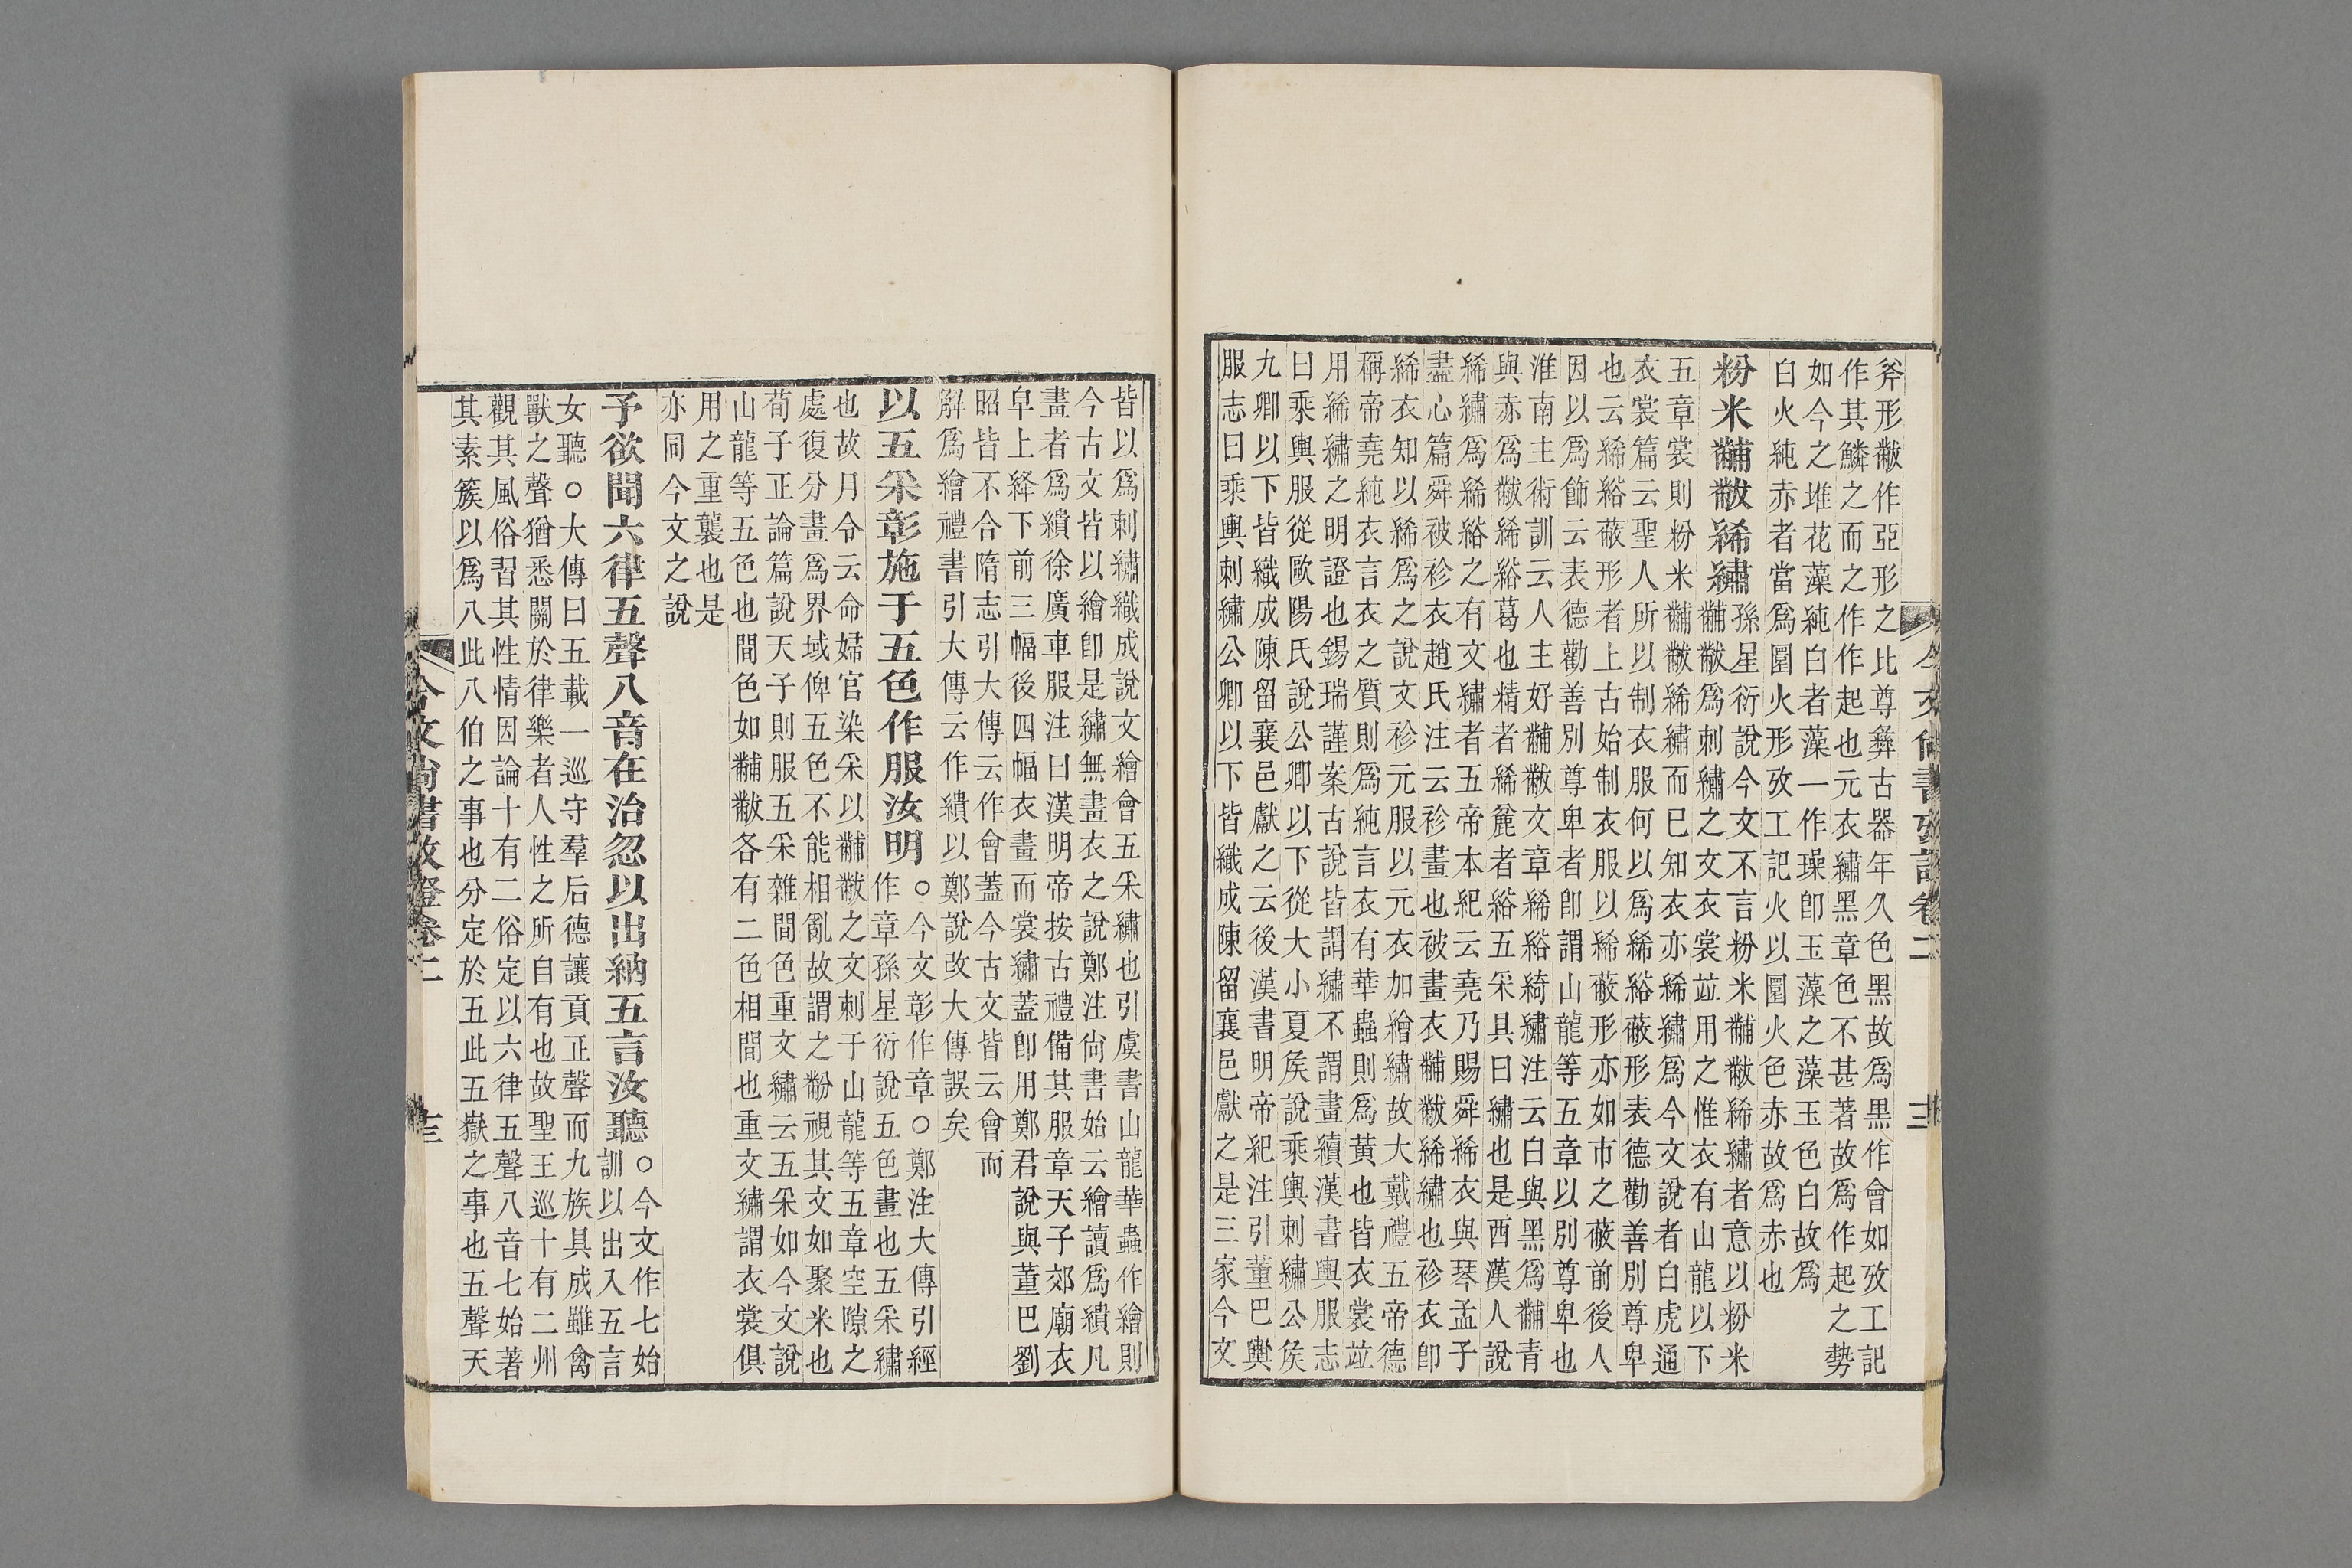 斧形黻作亞形之比尊彝古器年久色黑故爲黑作會如攷工記
作其鱗之而之作作起也元衣繡黑章色不甚著故爲作起之勢
如今之堆花藻純白者藻一作璪卽玉藻之藻玉色白故爲
白火純赤者當爲圜火形攷工記火以圜火色赤故爲赤也
粉米黼黻絺繡孫星衍說今文不言粉米黼黻絺繡者意以粉米
黼黻爲刺繡之文衣裳竝用之惟衣有山龍以下
五章裳則粉米黼黻絺繡而已知衣亦絺繡爲今文說者白虎通
衣裳篇云聖人所以制衣服何以爲絺綌蔽形表德勸善別尊卑
也云絺綌蔽形者上古始制衣服以絺蔽形亦如巿之蔽前後人
因以爲飾云表德勸善別尊卑者卽謂山龍等五章以別尊卑也
淮南主術訓云人主好黼黻文章絺綌綺繡注云白與黑爲黼青
與赤爲黻絺綌葛也精者絺麄者綌五采具曰繡也是西漢人說
絺繡爲絺綌之有文繡者五帝本紀云堯乃賜舜絺衣與琴孟子
盡心篇舜被袗衣趙氏注云袗畫也被畫衣黼黻絺繡也袗衣卽
絺衣知以絺爲之說文袗元服以元衣加繪繡故大戴禮五帝德
稱帝堯純衣言衣之質則爲純言衣有華蟲則爲黃也皆衣裳竝
用絺繡之明證也錫瑞謹案古說皆謂繡不謂畫續漢書輿服志
曰乘輿服從歐陽氏說公卿以下從大小夏矦說乘輿刺繡公矦
九卿以下皆織成陳留襄邑獻之云後漢書明帝紀注引董巴輿
服志曰乘輿刺繡公卿以下皆織成陳留襄邑獻之是三家今文
今文尚書攷證卷二
十二
皆以爲刺繡織成說文繪會五采繡也引虞書山龍華蟲作繪則
今古文皆以繪卽是繡無畫衣之說鄭注尙書始云繪讀爲繢凡
畫者爲繢徐廣車服注曰漢明帝按古禮備其服章天子郊廟衣
皁上絳下前三幅後四幅衣畫而裳繡蓋卽用鄭君說與董巴劉
昭皆不合隋志引大傳云作會蓋今古文皆云會而
解爲繪禮書引大傳云作繢以鄭說改大傳誤矣
以五采彰施于五色作服汝明○今文彰作章○鄭注大傳引經
作章孫星衍說五色畫也五采繡
也故月令云命婦官染采以黼黻之文刺于山龍等五章空隙之
處復分畫爲界域俾五色不能相亂故謂之黺視其文如聚米也
荀子正論篇說天子則服五采雜間色重文繡云五采如今文說
山龍等五色也間色如黼黻各有二色相間也重文繡謂衣裳俱
用之重襲也是
亦同今文之說
予欲聞六律五聲八音在治忽以出納五言汝聽○今文作七始
訓以出入五言
女聽○大傳曰五載一巡守羣后德讓貢正聲而九族具成雖禽
獸之聲猶悉關於律樂者人性之所自有也故聖王巡十有二州
觀其風俗習其性情因論十有二俗定以六律五聲八音七始著
其素簇以爲八此八伯之事也分定於五此五嶽之事也五聲天
今文尚書攷證卷二
十三